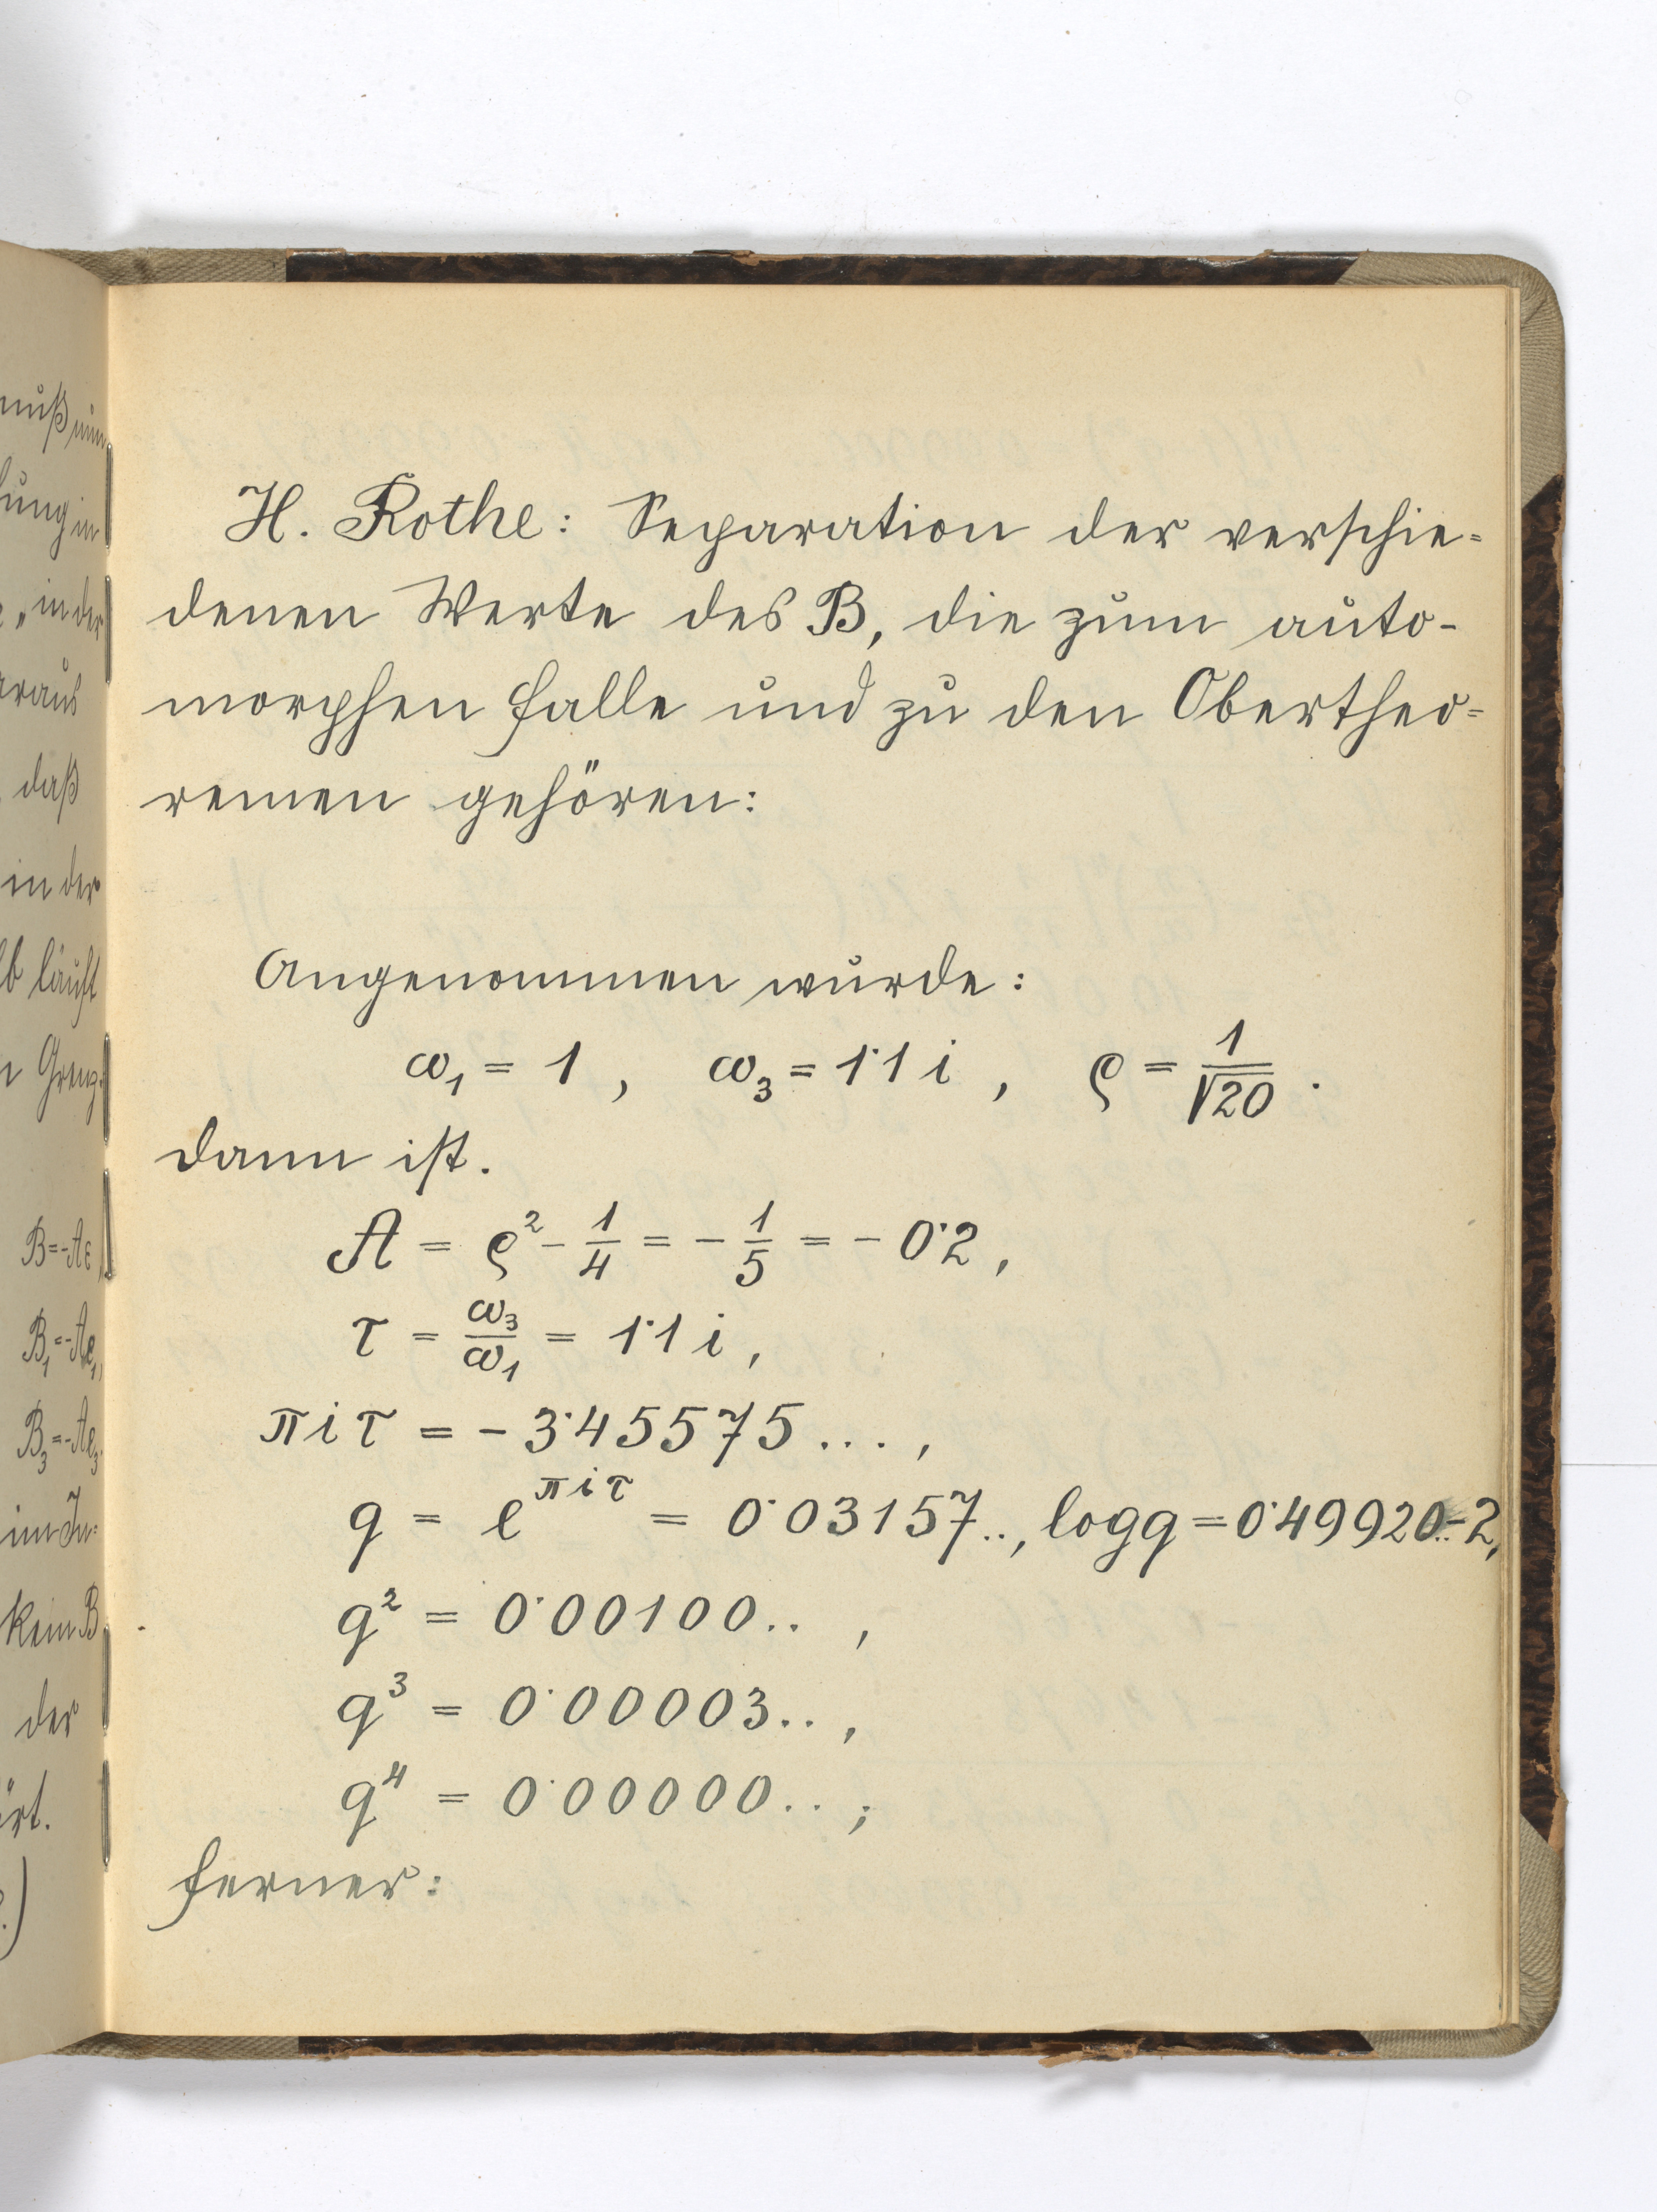 nuß nun
fung in
"in der
araus
daß
in der
lb läuft
n Grenz-
B=-Ae,
B₁=-Ae₁,
B₃=-Ae₃.
im In-
kein B
der
ört.
H. Rothe: Separation der verschie=
denen Werte des B, die zum auto-
morphen Falle und zu den Obertheo=
remen gehören:
Angenommen wurde:
ω₁ = 1, ω₃ = 1·1 i, ρ = 1/√20.
dann ist.
A = ρ² - 1/4 = - 1/5 = - 0·2,
τ = ω₃/ω₁ = 1·1 i,
πiτ = - 3·45575...,
q = e^πiτ = 0·03157.., log q = 0·49920..-2,
q² = 0·00100..,
q³ = 0·00003..,
q⁴ = 0·00000..;
ferner: